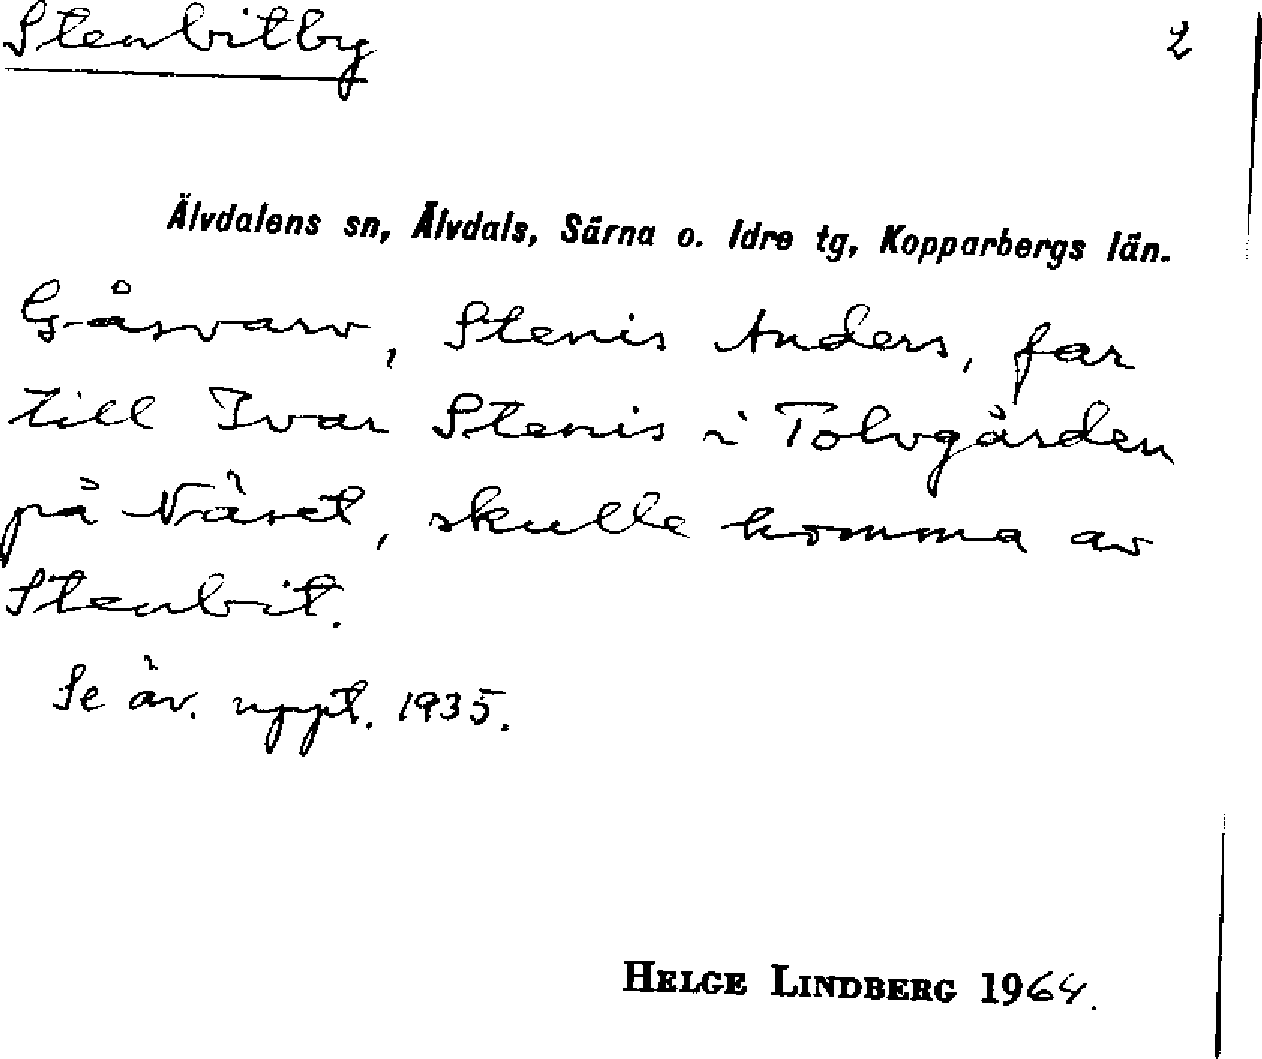 Stenbitby 2
Älvdalens sn, Älvdals, Särna o. Idre tg, Kopparbergs län.
Gåsvarv, Stenis Anders, far
till Ivar Stenis i Tolvgården
på Näset, skulle komma av
Stenbit.
Se äv. uppt. 1935.
HELGE LINDBERG 1964.